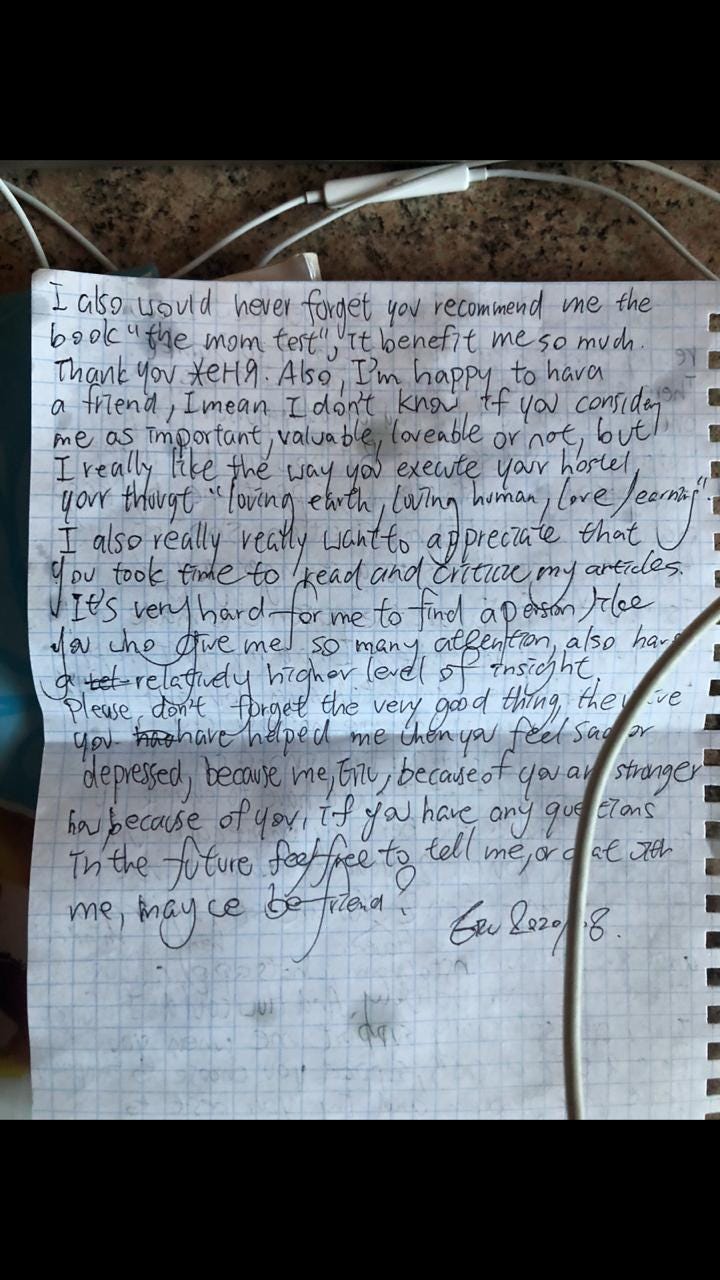 I also would never forget you recommend me the
book "the mom test", it benefit me so much.
Thank you Женя. Also, I'm happy to have
a friend, I mean I don't know if you consider
me as important, valuable, loveable or not, but
I really like the way you execute your hostel,
your thougt "loving earth, loving human, love learning".
I also really really want to appreciate that
you took time to read and critize my articles.
It's very hard for me to find a person like
you who give me so many attention, also have
a relatively higher level of insight.
Please don't forget the very good thing, the
you have helped me when you feel sad or
depressed, because me, Eric, because of you am stronger
because of you, if you have any questions
in the future feel free to tell me, or chat with
me, mayce be friend!
Eric 2020